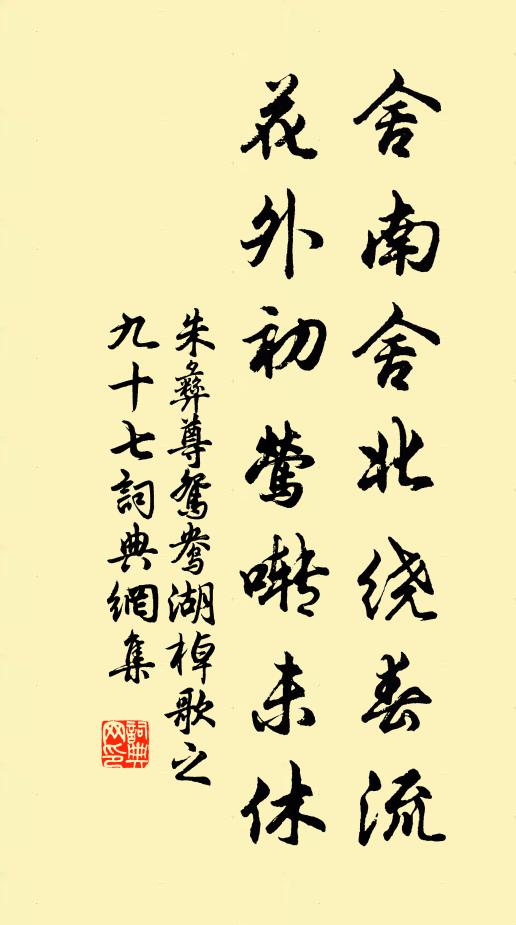 舍南舍北绕春流
花外初莺啭未休
朱彝尊鸳鸯湖棹歌之
九十七詞典網集
詞典
网印